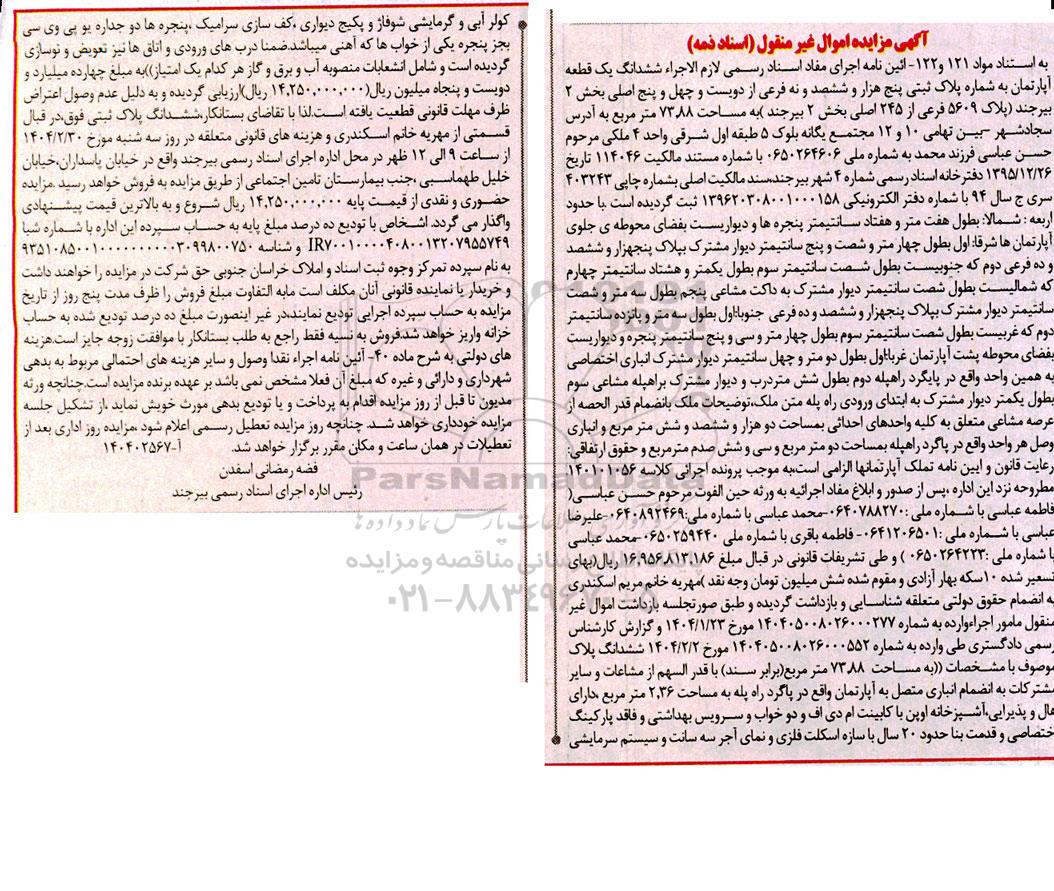 آگهی مزایده اموال غیر منقول (اسناد ذمه)
به استناد مواد ۱۲۱ و۱۲۲- آئین نامه اجرای مفاد اسناد رسمی لازم الاجراء ششدانگ یک قطعه
آپارتمان به شماره پلاک ثبتی پنج هزار و ششصد و نه فرعی از دویست و چهل و پنج اصلی بخش ۲
بیرجند (پلاک ۵۶۰۹ فرعی از ۲۴۵ اصلی بخش ۲ بیرجند )به مساحت ۷۳،۸۸ متر مربع به آدرس
سجادشهر –بین تهامی ۱۰ و ۱۲ مجتمع یگانه بلوک ۵ طبقه اول شرقی واحد ۴ ملکی مرحوم
حسن عباسی فرزند محمد به شماره ملی ۰۶۵۰۲۶۴۶۰۶ با شماره مستند مالکیت ۱۱۴۰۴۶ تاریخ
۱۳۹۵/۱۲/۲۶ دفترخانه اسناد رسمی شماره ۴ شهر بیرجند،سند مالکیت اصلی بشماره چاپی ۴۰۳۲۴۳
سری ج سال ۹۴ با شماره دفتر الکترونیکی ۱۳۹۶۲۰۳۰۸۰۰۱۰۰۰۱۵۸ ثبت گردیده است .با حدود
اربعه : شمالا: بطول هفت متر و هفتاد سانتیمتر پنجره ها و دیواریست بفضای محوطه ی جلوی
آپارتمان ها شرقا: اول بطول چهار متر و شصت و پنج سانتیمتر دیوار مشترک بپلاک پنجهزار و ششصد
و ده فرعی دوم که جنوبیست بطول شصت سانتیمتر سوم بطول یکمتر و هشتاد سانتیمتر چهارم
که شمالیست بطول شصت سانتیمتر دیوار مشترک به داکت مشاعی پنجم بطول سه متر و شصت
سانتیمتر دیوار مشترک بپلاک پنجهزار و ششصد و ده فرعی جنوبا:اول بطول سه متر و پانزده سانتیمتر
دوم که غربیست بطول شصت سانتیمتر سوم بطول چهار متر و سی و پنج سانتیمتر پنجره و دیواریست
بفضای محوطه پشت آپارتمان غربا:اول بطول دو متر و چهل سانتیمتر دیوار مشترک انباری اختصاصی
به همین واحد واقع در پاگرد راهپله دوم بطول شش متردرب و دیوار مشترک براهپله مشاعی سوم
بطول یکمتر دیوار مشترک به ابتدای ورودی راه پله متن ملک،توضیحات ملک بانضمام قدر الحصه از
عرصه مشاعی متعلق به کلیه واحدهای احداثی بمساحت دو هزار و ششصد و شش متر مربع و انباری
وصل هر واحد واقع در پاگرد راهپله بمساحت دو متر مربع و سی و شش صدم مترمربع و حقوق ارتفاقی:
رعایت قانون و آیین نامه تملک آپارتمانها الزامی است،به موجب پرونده اجرائی کلاسه ۱۴۰۱۰۱۰۵۶
مطروحه نزد این اداره ،پس از صدور و ابلاغ مفاد اجرائیه به ورثه حین الفوت مرحوم حسن عباسی(
فاطمه عباسی با شماره ملی :۰۶۴۰۷۸۸۲۷۰-محمد عباسی با شماره ملی:۰۶۴۰۸۹۲۴۶۹-علیرضا
عباسی با شماره ملی :۰۶۴۱۲۰۶۵۰۱- فاطمه باقری با شماره ملی ۰۶۵۰۲۵۹۴۴۰-محمد عباسی
با شماره ملی :۰۶۵۰۲۶۴۲۲۳ ) و طی تشریفات قانونی در قبال مبلغ ۱۶،۹۵۶،۸۱۳،۱۸۶ ریال(بهای
تسعیر شده ۱۰سکه بهار آزادی و مقوم شده شش میلیون تومان وجه نقد )مهریه خانم مریم اسکندری
به انضمام حقوق دولتی متعلقه شناسایی و بازداشت گردیده و طبق صورتجلسه بازداشت اموال غیر
منقول مامور اجراءوارده به شماره ۱۴۰۴۰۵۰۰۸۰۲۶۰۰۰۲۷۷ مورخ ۱۴۰۴/۱/۲۳ و گزارش کارشناس
رسمی دادگستری طی وارده به شماره ۱۴۰۴۰۵۰۰۸۰۲۶۰۰۰۵۵۲ مورخ ۱۴۰۴/۲/۲ ششدانگ پلاک
موصوف با مشخصات ((به مساحت ۷۳،۸۸ متر مربع(برابر سند) با قدر السهم از مشاعات و سایر
مشترکات به انضمام انباری متصل به آپارتمان واقع در پاگرد راه پله به مساحت ۲،۳۶ متر مربع ،دارای
هال و پذیرایی،آشپزخانه اوپن با کابینت ام دی اف و دو خواب و سرویس بهداشتی و فاقد پارکینگ
اختصاصی و قدمت بنا حدود ۲۰ سال با سازه اسکلت فلزی و نمای آجر سه سانت و سیستم سرمایشی
کولر آبی و گرمایشی شوفاژ و پکیج دیواری ،کف سازی سرامیک ،پنجره ها دو جداره یو پی وی سی
بجز پنجره یکی از خواب ها که آهنی میباشد،ضمنا درب های ورودی و اتاق ها نیز تعویض و نوسازی
گردیده است و شامل انشعابات منصوبه آب و برق و گاز هر کدام یک امتیاز))به مبلغ چهارده میلیارد و
دویست و پنجاه میلیون ریال(۱۴،۲۵۰،۰۰۰،۰۰۰ ریال)ارزیابی گردیده و به دلیل عدم وصول اعتراض
ظرف مهلت قانونی قطعیت یافته است.لذا با تقاضای بستانکار،ششدانگ پلاک ثبتی فوق،در قبال
قسمتی از مهریه خانم اسکندری و هزینه های قانونی متعلقه در روز سه شنبه مورخ ۱۴۰۴/۲/۳۰
از ساعت ۹ الی ۱۲ ظهر در محل اداره اجرای اسناد رسمی بیرجند واقع در خیابان پاسداران،خیابان
خلیل طهماسبی ،جنب بیمارستان تامین اجتماعی از طریق مزایده به فروش خواهد رسید .مزایده
حضوری و نقدی از قیمت پایه ۱۴،۲۵۰،۰۰۰،۰۰۰ ریال شروع و به بالاترین قیمت پیشنهادی
واگذار می گردد. اشخاص با تودیع ده درصد مبلغ پایه به حساب سپرده این اداره با شماره شبا
IR۷۰۰۱۰۰۰۰۴۰۸۰۰۱۳۲۰۷۹۵۵۷۴۹ و شناسه ۹۳۵۱۰۸۵۰۰۱۰۰۰۰۰۰۰۰۰۰۰۳۰۹۹۸۰۰۷۵۰
به نام سپرده تمرکز وجوه ثبت اسناد و املاک خراسان جنوبی حق شرکت در مزایده را خواهند داشت
و خریدار یا نماینده قانونی آنان مکلف است مابه التفاوت مبلغ فروش را ظرف مدت پنج روز از تاریخ
مزایده به حساب سپرده اجرایی تودیع نمایند،در غیر اینصورت مبلغ ده درصد تودیع شده به حساب
خزانه واریز خواهد شد.فروش به نسیه فقط راجع به طلب بستانکار با موافقت زوجه جایز است.هزینه
های دولتی به شرح ماده ۴۰- آئین نامه اجراء نقدا وصول و سایر هزینه های احتمالی مربوط به بدهی
شهرداری و دارائی و غیره که مبلغ آن فعلا مشخص نمی باشد بر عهده برنده مزایده است.چنانچه ورثه
مدیون تا قبل از روز مزایده اقدام به پرداخت و یا تودیع بدهی مورث خویش نماید ،از تشکیل جلسه
مزایده خودداری خواهد شد. چنانچه روز مزایده تعطیل رسمی اعلام شود ،مزایده روز اداری بعد از
تعطیلات در همان ساعت و مکان مقرر برگزار خواهد شد. آ-۱۴۰۴۰۲۵۶۷
فضه رمضانی اسفدن
رئیس اداره اجرای اسناد رسمی بیرجند
ParsNamadData
پایگاه اطلاع رسانی مناقصه و مزایده
۰۲۱-۸۸۳۴۹۶۷۰-۵